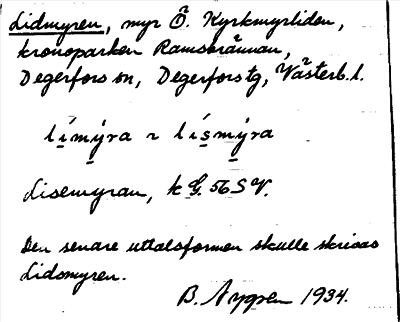 Lidmyren, myr Ö. Kyrkmyrliden,
kronoparken Ramsbrännan,
Degerfors sn, Degerfors tg, Västerb. l.
límýra ~ lísmýra
Lisemyran, k G. 56 S V.
Den senare uttalsformen skulle skrivas
Lidsmyren.
B. Nygren 1934.